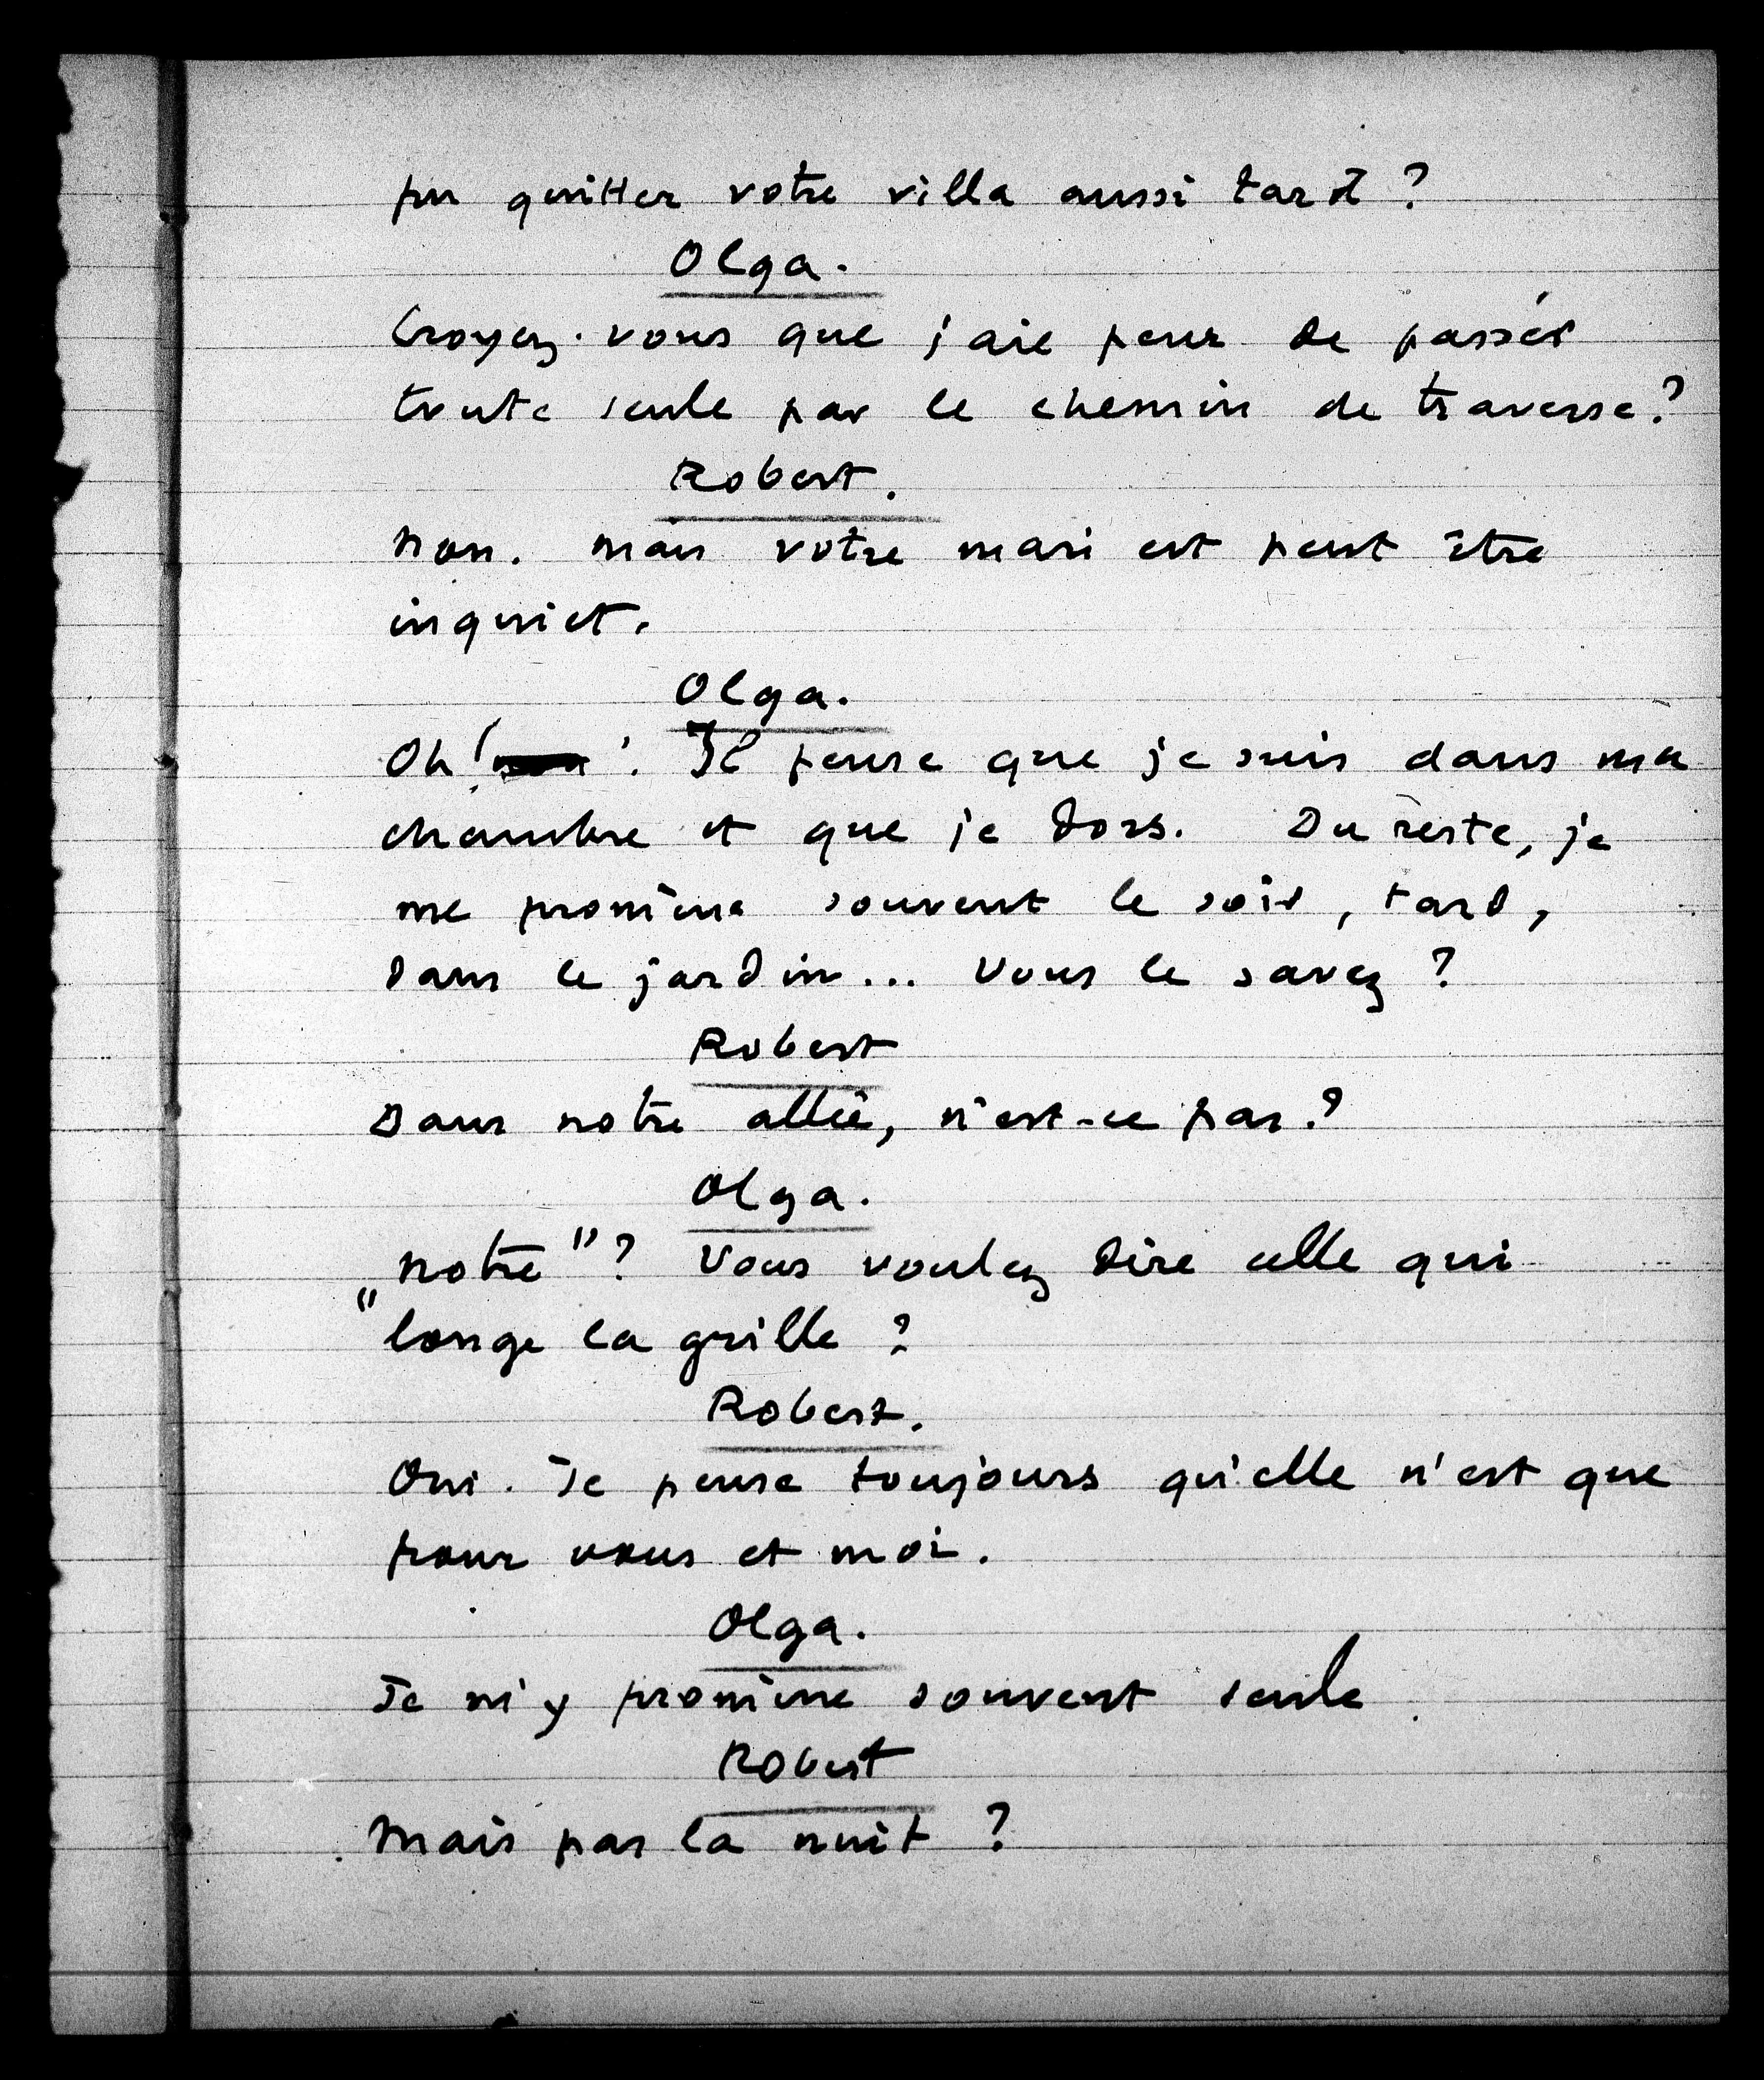 pu quitter votre villa aussi tard ?
Olga.
Croyez-vous que j'aie peur de passer
toute seule par le chemin de traverse ?
Robert.
Non. Mais votre mari est peut être
inquiet.
Olga.
Oh ! Il pense que je suis dans ma
chambre et que je dors. Du reste, je
me promène souvent le soir, tard,
dans le jardin... Vous le savez ?
Robert
Dans notre allée, n'est-ce pas ?
Olga.
„notre" ? Vous voulez dire celle qui
longe la grille ?
Robert.
Oui. Je pense toujours qu'elle n'est que
pour vous et moi.
Olga.
Je m'y promène souvent seule.
Robert
Mais pas la nuit ?